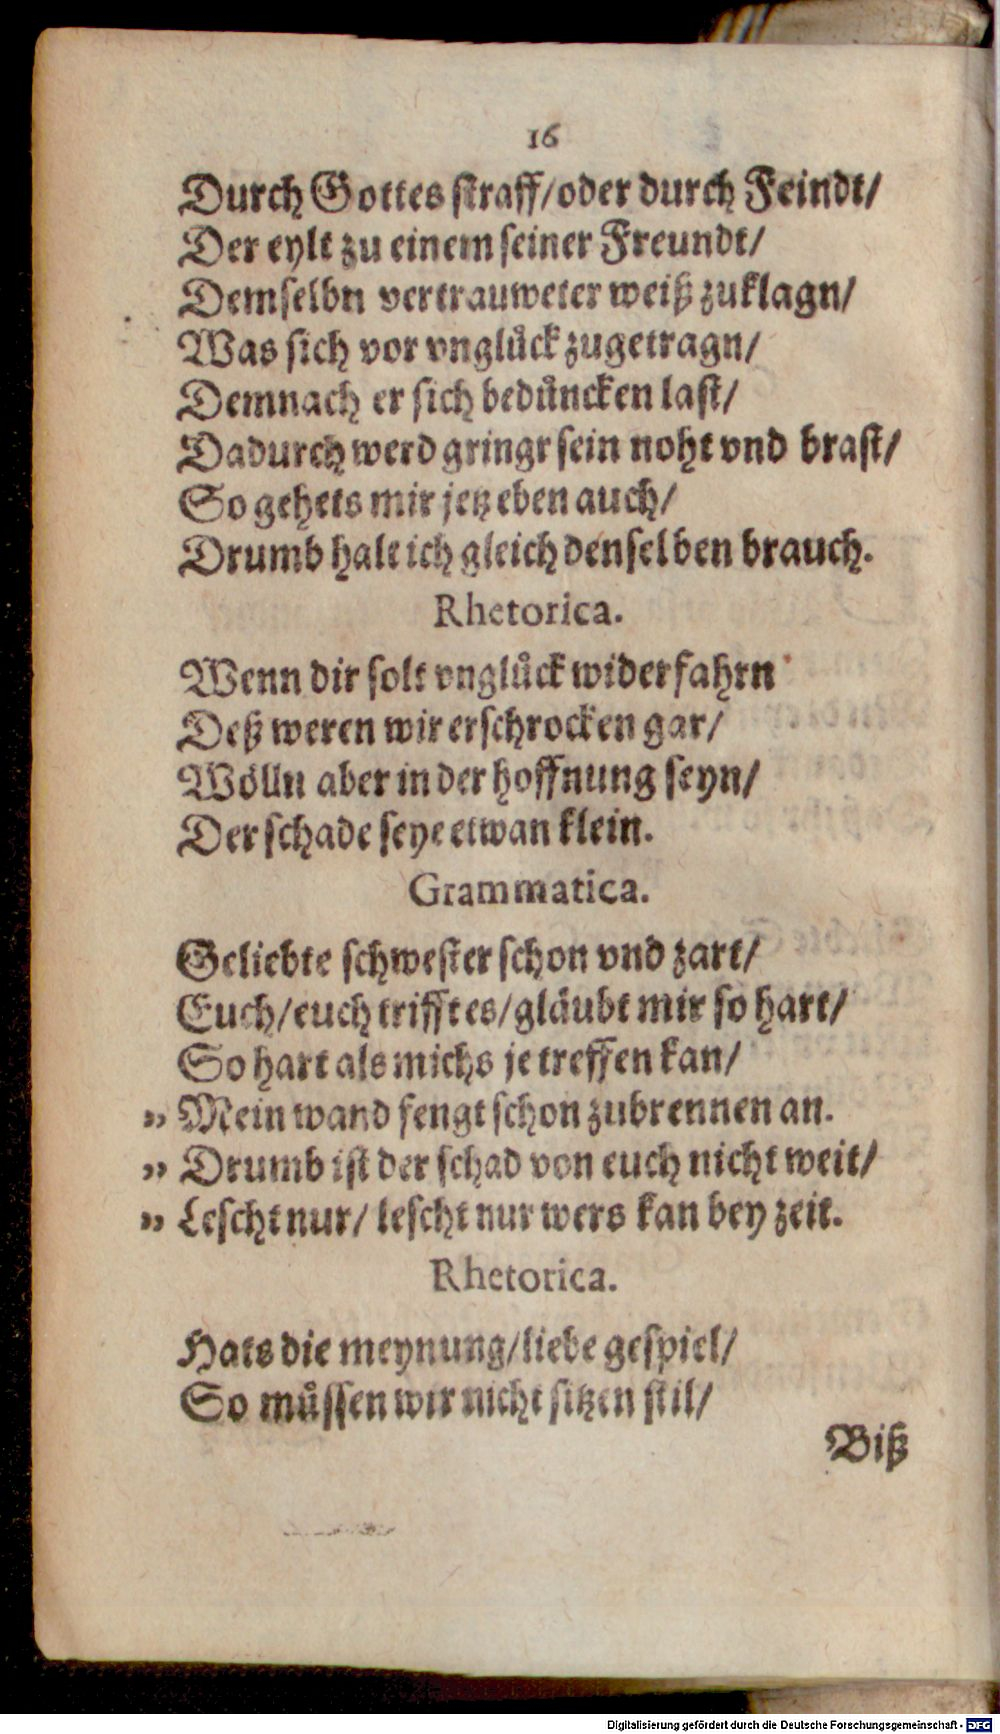 16
Durch Gottes straff/oder durch Feindt/
Der eylt zu einem seiner Freundt/
Demselbn vertrauweter weiß zuklagn/
Was sich vor vnglůck zugetragn/
Demnach er sich bedůncken last/
Dadurch werd gringr sein noht vnd brast/
So gehets mir jetz eben auch/
Drumb halt ich gleich denselben brauch.
Rhetorica.
Wenn dir solt vnglůck widerfahrn
Deß weren wir erschrocken gar/
Wölln aber in der hoffnung seyn/
Der schade seye etwan klein.
Grammatica.
Geliebte schwester schon vnd zart/
Euch/euch trifft es/gläubt mir so hart/
So hart als michs je treffen kan/
„ Mein wand fengt schon zubrennen an.
„ Drumb ist der schad von euch nicht weit/
„ Lescht nur/ lescht nur wers kan bey zeit.
Rhetorica.
Hats die meynung/liebe gespiel/
So můssen wir nicht sitzen stil/
Biß
Digitalisierung gefördert durch die Deutsche Forschungsgemeinschaft - DFG